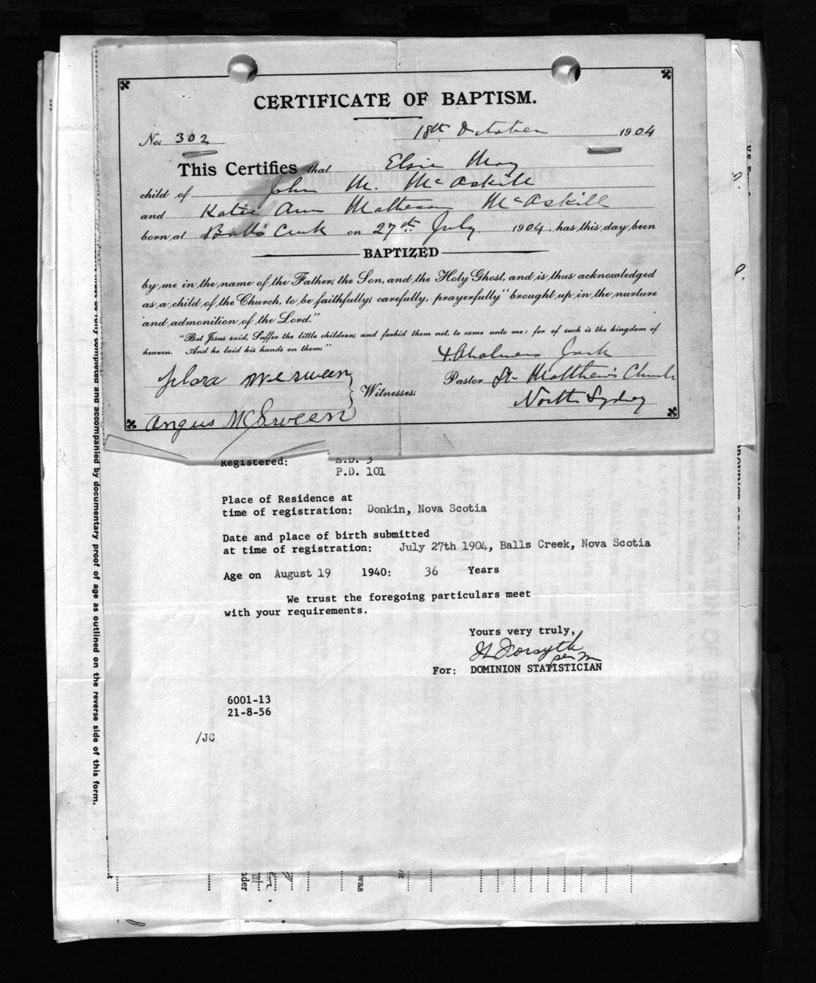 CERTIFICATE OF BAPTISM.
No. 302 18th October 1904
This Certifies that Elsie May
child of John M. McAskill
and Katie Ann Matheson McAskill
born at Balls Creek on 27th July 1904 has this day been
BAPTIZED
by me in the name of the Father, the Son, and the Holy Ghost, and is thus acknowledged
as a child of the Church, to be faithfully, carefully, prayerfully "brought up in the nurture
and admonition of the Lord."
"But Jesus said, Suffer the little children, and forbid them not, to come unto me: for of such is the kingdom of
heaven. And he laid his hands on them."
Chalmers Jack
Flora McSween
Witnesses:
Pastor St. Matthew's Church
North Sydney
Angus McSween
Registered: E.D. 3
P.D. 101
Place of Residence at
time of registration: Donkin, Nova Scotia
Date and place of birth submitted
at time of registration: July 27th 1904, Balls Creek, Nova Scotia
Age on August 19 1940: 36 Years
We trust the foregoing particulars meet
with your requirements.
Yours very truly,
Forsyth
per
For: DOMINION STATISTICIAN
6001-13
21-8-56
/JC
completed and accompanied by documentary proof of age as outlined on the reverse side of this form.
was